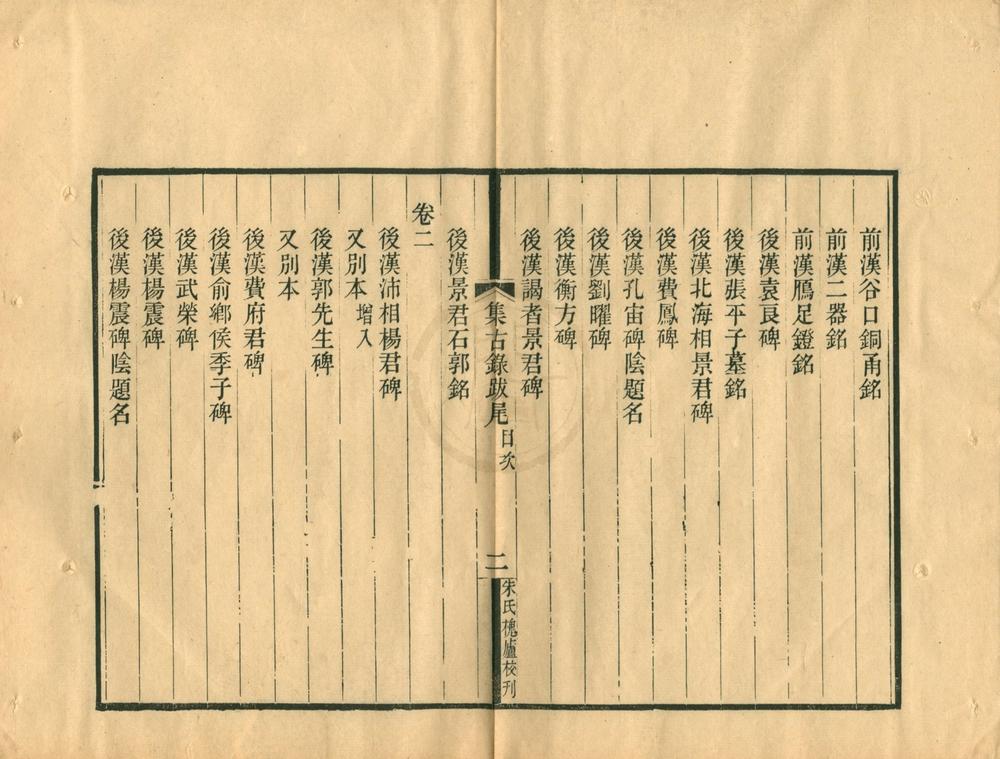 前漢谷口銅甬銘
前漢二器銘
前漢鴈足鐙銘
後漢袁良碑
後漢張平子墓銘
後漢北海相景君碑
後漢費鳳碑
後漢孔宙碑陰題名
後漢劉曜碑
後漢衡方碑
後漢謁者景君碑
集古錄跋尾 目次
二
朱氏槐廬校刊
後漢景君石郭銘
卷二
後漢沛相楊君碑
又別本 增入
後漢郭先生碑
又別本
後漢費府君碑
後漢俞鄉侯季子碑
後漢武榮碑
後漢楊震碑
後漢楊震碑陰題名